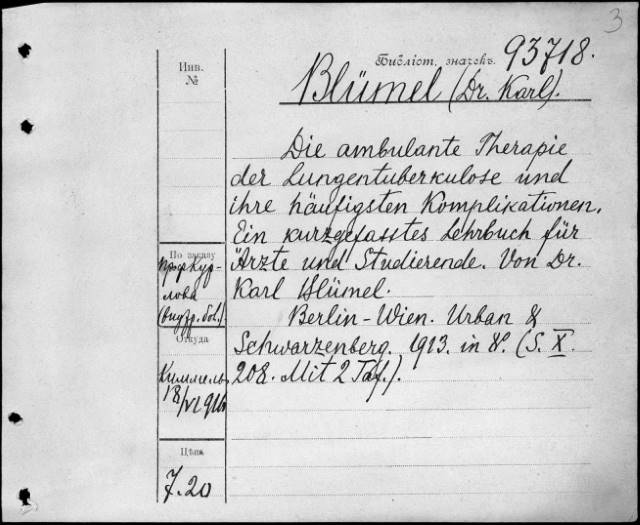 3
Библіот. значекъ 93718.
Инв.
№
Blümel (Dr. Karl).
Die ambulante Therapie
der Lungentuberkulose und
ihre häufigsten Komplikationen.
Ein kurzgefasstes Lehrbuch für
Ärzte und Studierende. Von Dr.
Karl Blümel.
Berlin-Wien. Urban &
Schwarzenberg. 1913. in 8°. (S. X.
208. Mit 2 Taf.).
По заказу
проф. Кур-
лова
Откуда
Киммель
Цѣна
7.20